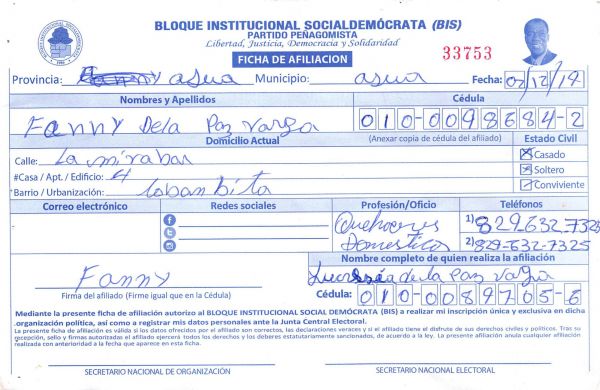 BLOQUE INSTITUCIONAL SOCIALDEMÓCRATA (BIS)
PARTIDO PEÑAGOMISTA
Libertad, Justicia, Democracia y Solidaridad
FICHA DE AFILIACION
33753
Provincia: Fanny asua Municipio: asua Fecha: 02/12/19
Nombres y Apellidos Cédula
Fanny Dela Paz Varga 010-0098684-2
(Anexar copia de cédula del afiliado)
Domicilio Actual Estado Civil
Calle: La mirabar Casado
#Casa / Apt. / Edificio: 4 Soltero
Barrio / Urbanización: loban bita Conviviente
Correo electrónico Redes sociales Profesión/Oficio Teléfonos
Quehaceres Domestico
1) 829-632-7325
2) 829-632-7325
Nombre completo de quien realiza la afiliación
Fanny de la Paz Varga
Firma del afiliado (Firme igual que en la Cédula) Cédula: 010-0089705-6
Mediante la presente ficha de afiliación autorizo al BLOQUE INSTITUCIONAL SOCIAL DEMÓCRATA (BIS) a realizar mi inscripción única y exclusiva en dicha
organización política, así como a registrar mis datos personales ante la Junta Central Electoral.
La presente ficha de afiliación es válida si los datos ofrecidos por el afiliado son correctos, las declaraciones veraces y si el afiliado tiene el disfrute de sus derechos civiles y políticos. Tras su
recepción, sello y firmas autorizadas el afiliado ejercerá todos los derechos y los deberes estatutariamente sancionados, de acuerdo a la ley. La presente afiliación anula cualquier afiliación
realizada con anterioridad a la fecha que aparece en esta ficha.
SECRETARIO NACIONAL DE ORGANIZACIÓN SECRETARIO NACIONAL ELECTORAL